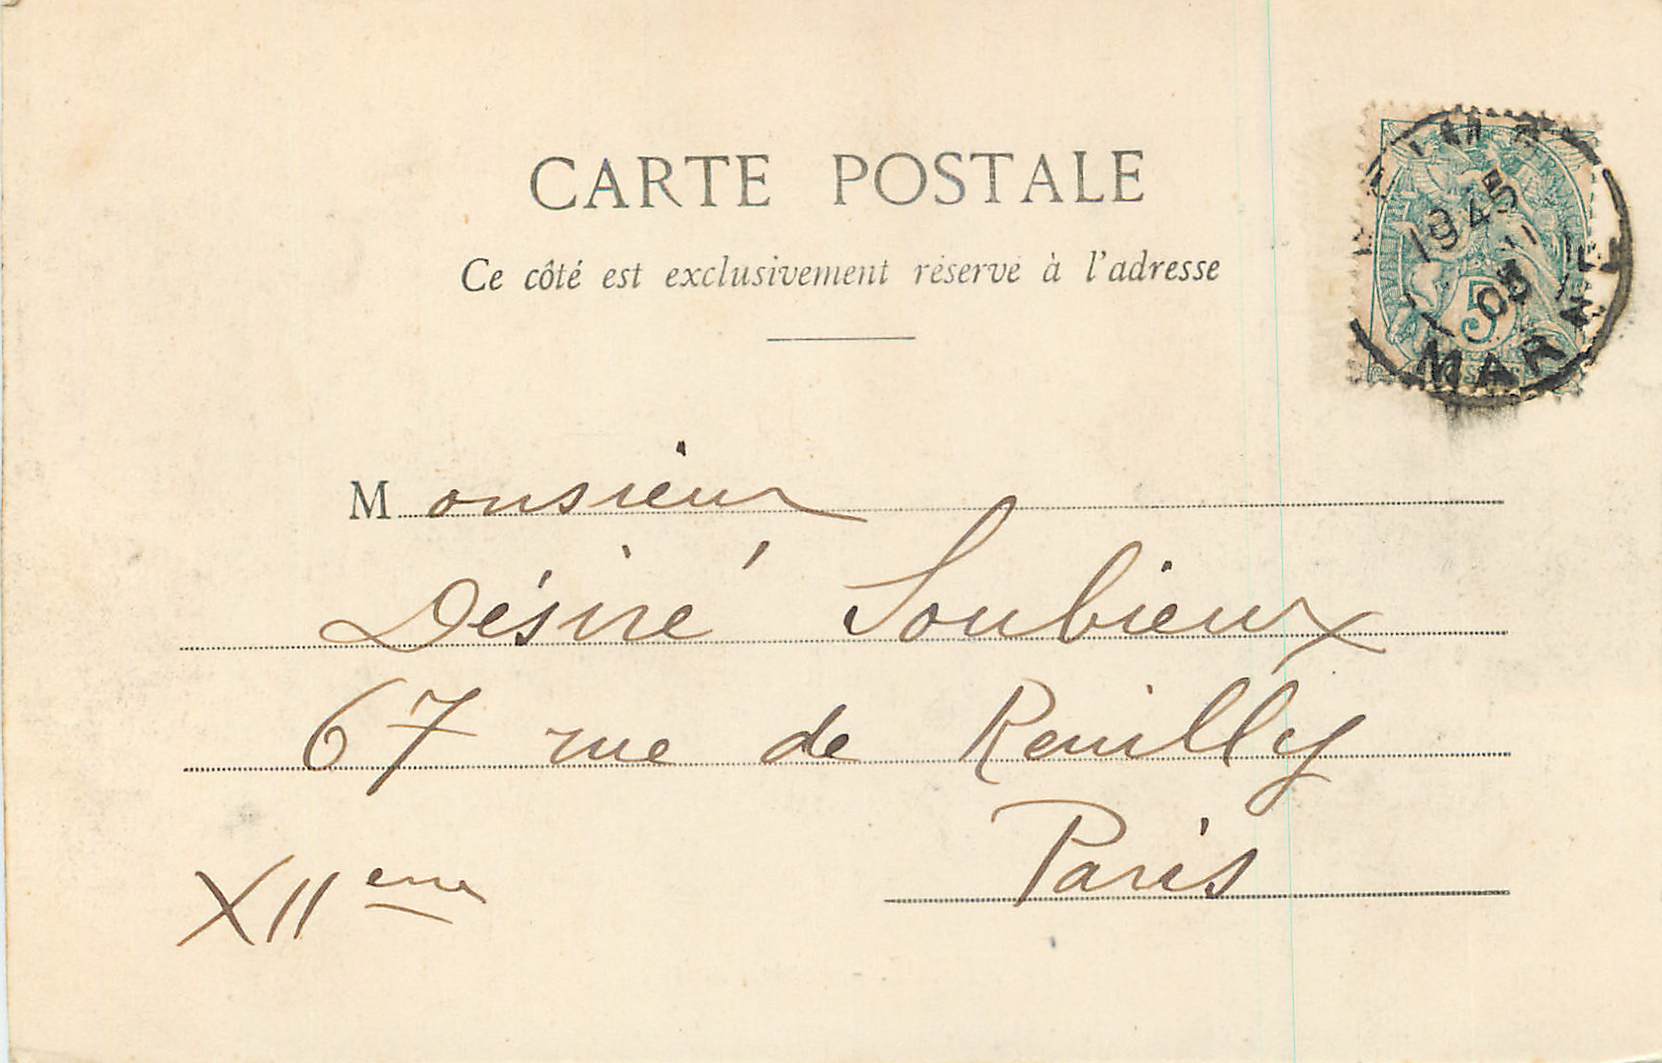 CARTE POSTALE
Ce côté est exclusivement réservé à l'adresse
Monsieur
Désiré Soubieux
67 rue de Reuilly
Paris
XIIeme
1945
05
5
MARNE